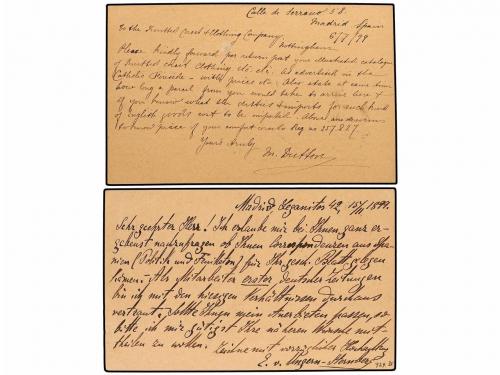 Calle de Serrano 58.
Madrid Spain
6/7/99
To the Knitted Corset & Clothing Company,
Nottingham
Please kindly forward per return post your illustrated catalogue
of Knitted corset Clothing etc. etc. as advertised in the
Catholic Fireside - with prices etc. Also state at same time
how long a parcel from you would take to arrive here &
if you know what the duties & imports for such kind
of English goods wd to be imposed. Above am desirous
to know price of your
Reg no 257.827.
Yours truly
M. Dutton
Madrid, Leganitos 42, 15/II 1899.
Sehr geehrter Herr! Ich erlaube mir bei Ihnen ganz er-
gebenst nachzufragen ob Ihnen Correspondenzen aus Spa-
nien (Politik und Feuilleton) für Ihr gesch. Blatt gelegen
kämen. - Als Mitarbeiter erster deutscher Zeitungen
bin ich mit den hiesigen Verhältnissen durchaus
vertraut. Sollte Ihnen mein Anerbieten passen, so
bitte ich mir gütigst Ihre näheren Wünsche mit-
theilen zu wollen. Zeichne mit vorzüglicher Hochachtung
E. v. Ungern-Sternberg